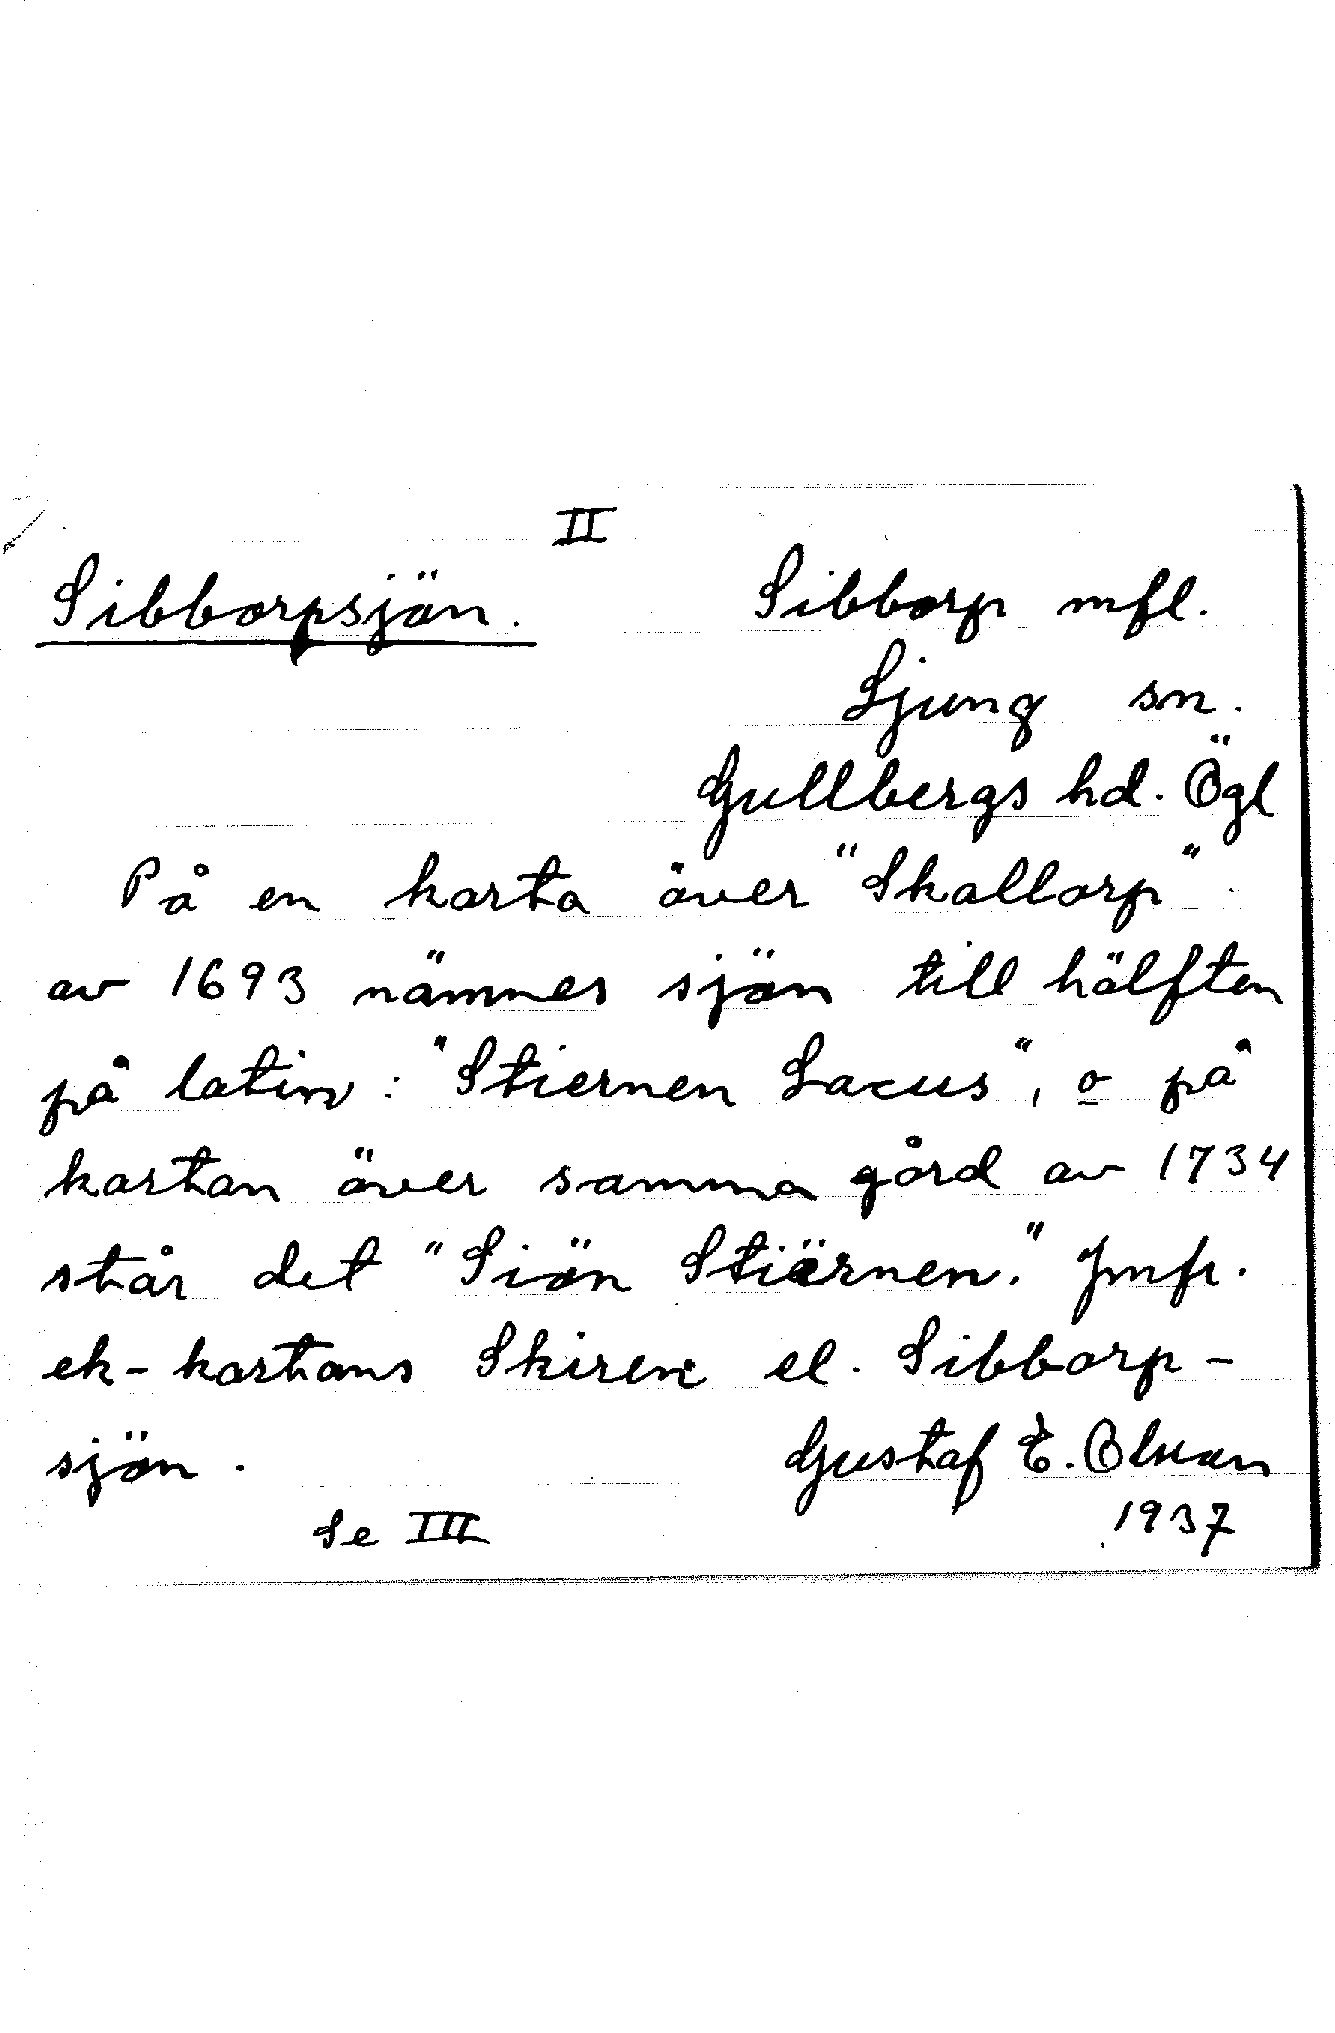 II
Sibborpsjön. Sibborp mfl.
Ljung sn.
Gullbergs hd. Ögl
På en karta över "Skallorp"
av 1693 nämnes sjön till hälften
på latin: "Stiernen Lacus", o på
kartan över samma gård av 1734
står det "Siön Stiärnen." Jmfr.
ek-kartans Skiren el. Sibborp-
sjön. Gustaf E. Olsson
Se III 1937